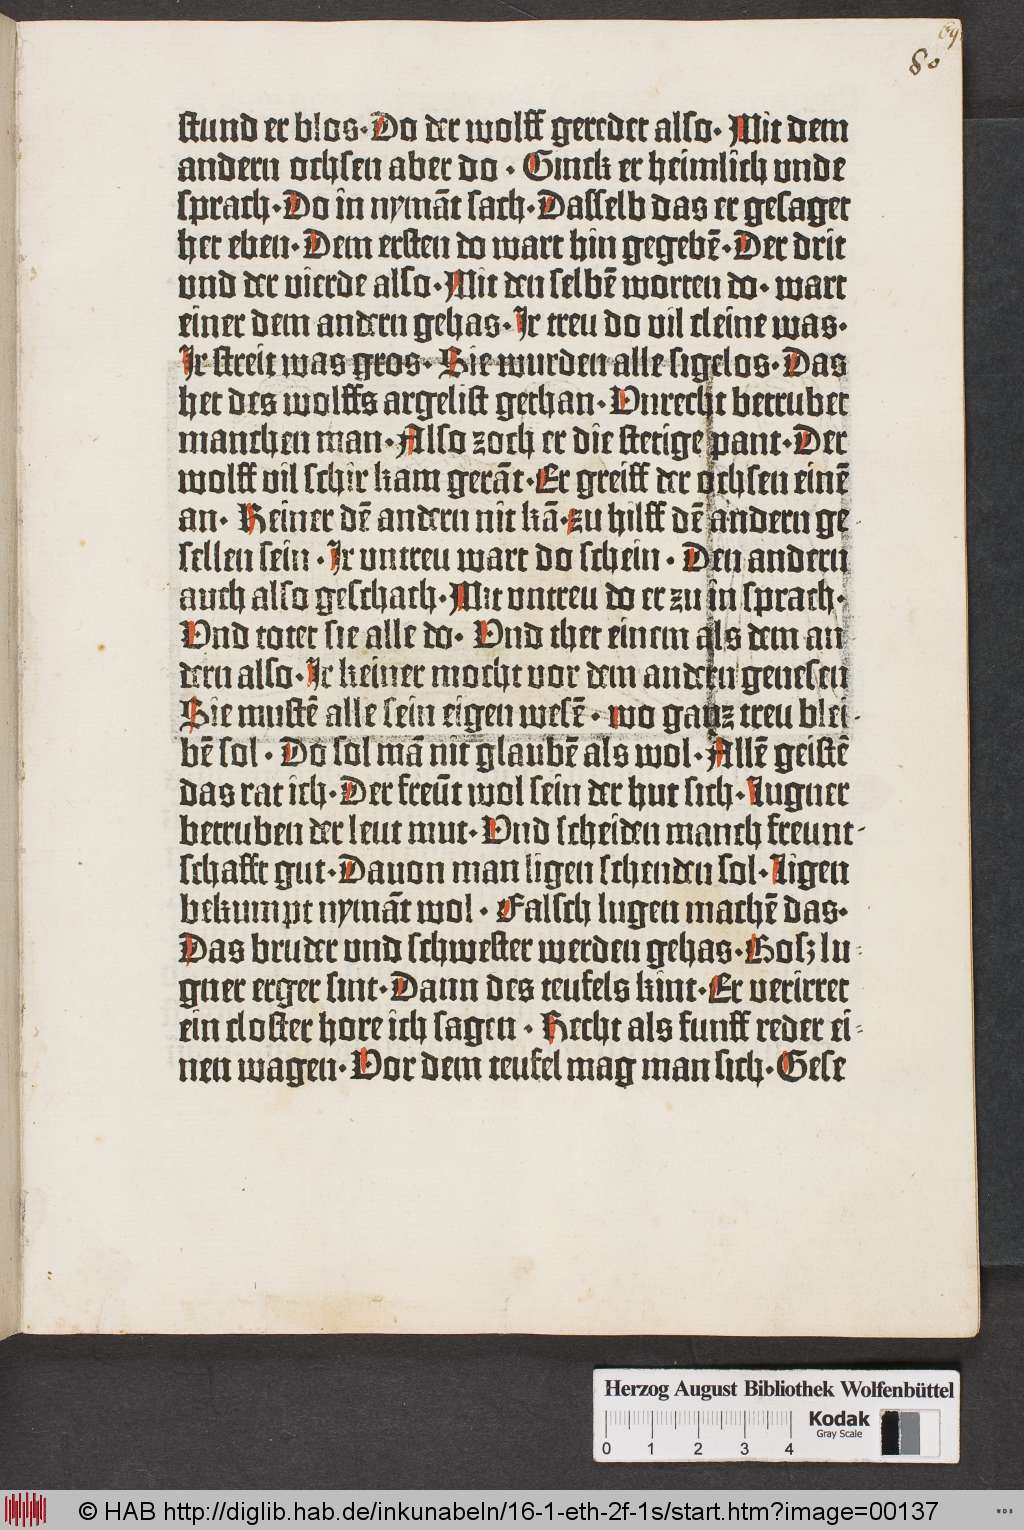 80
stund er blos· Do der wolff geredet also· Mit dem
andern ochsen aber do · Ginck er heimlich vnde
sprach· Do in nymāt sach· Dasselb das er gesaget
het eben· Dem ersten do wart hin gegebē· Der drit
vnd der vierde also· Mit den selbē worten do· wart
einer dem andern gehas· Ir treu do vil cleine was·
Ir streit was gros· Sie wurden alle sigelos· Das
het des wolffs argelist gethan· Vnrecht betrubet
manchen man· Also zoch er die stetige pant· Der
wolff vil schir kam gerāt· Er greiff der ochsen einē
an· Keiner dē andern nit kā· zu hilff dē andern ge
sellen sein · Ir vntreu wart do schein · Den andern
auch also geschach· Mit vntreu do er zu in sprach·
Vnd totet sie alle do· Vnd thet einem als dem an
dern also· Ir keiner mocht vor dem andern genesen
Sie mustē alle sein eigen wesē · wo ganz treu blei-
bē sol · Do sol mā nit glaubē als wol· Allē geistē
das rat ich· Der freūt wol sein der hut sich· Lugner
betruben der leut mut· Vnd scheiden manch freunt-
schafft gut· Dauon man ligen schenden sol· Ligen
bekumpt nymāt wol · Falsch lugen machē das·
Das bruder vnd schwester werden gehas· Bosz lu-
gner erger sint· Dann des teufels kint· Er verirret
ein closter hore ich sagen · Recht als funff reder ei-
nen wagen· Vor dem teufel mag man sich· Gese
Herzog August Bibliothek Wolfenbüttel
0 1 2 3 4
Kodak
Gray Scale
© HAB http://diglib.hab.de/inkunabeln/16-1-eth-2f-1s/start.htm?image=00137